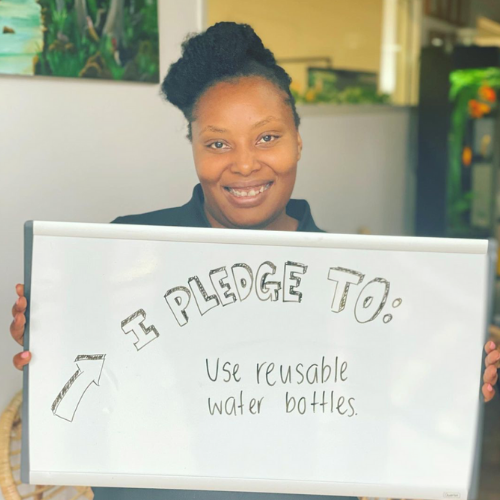 I PLEDGE TO:
Use reusable
water bottles.